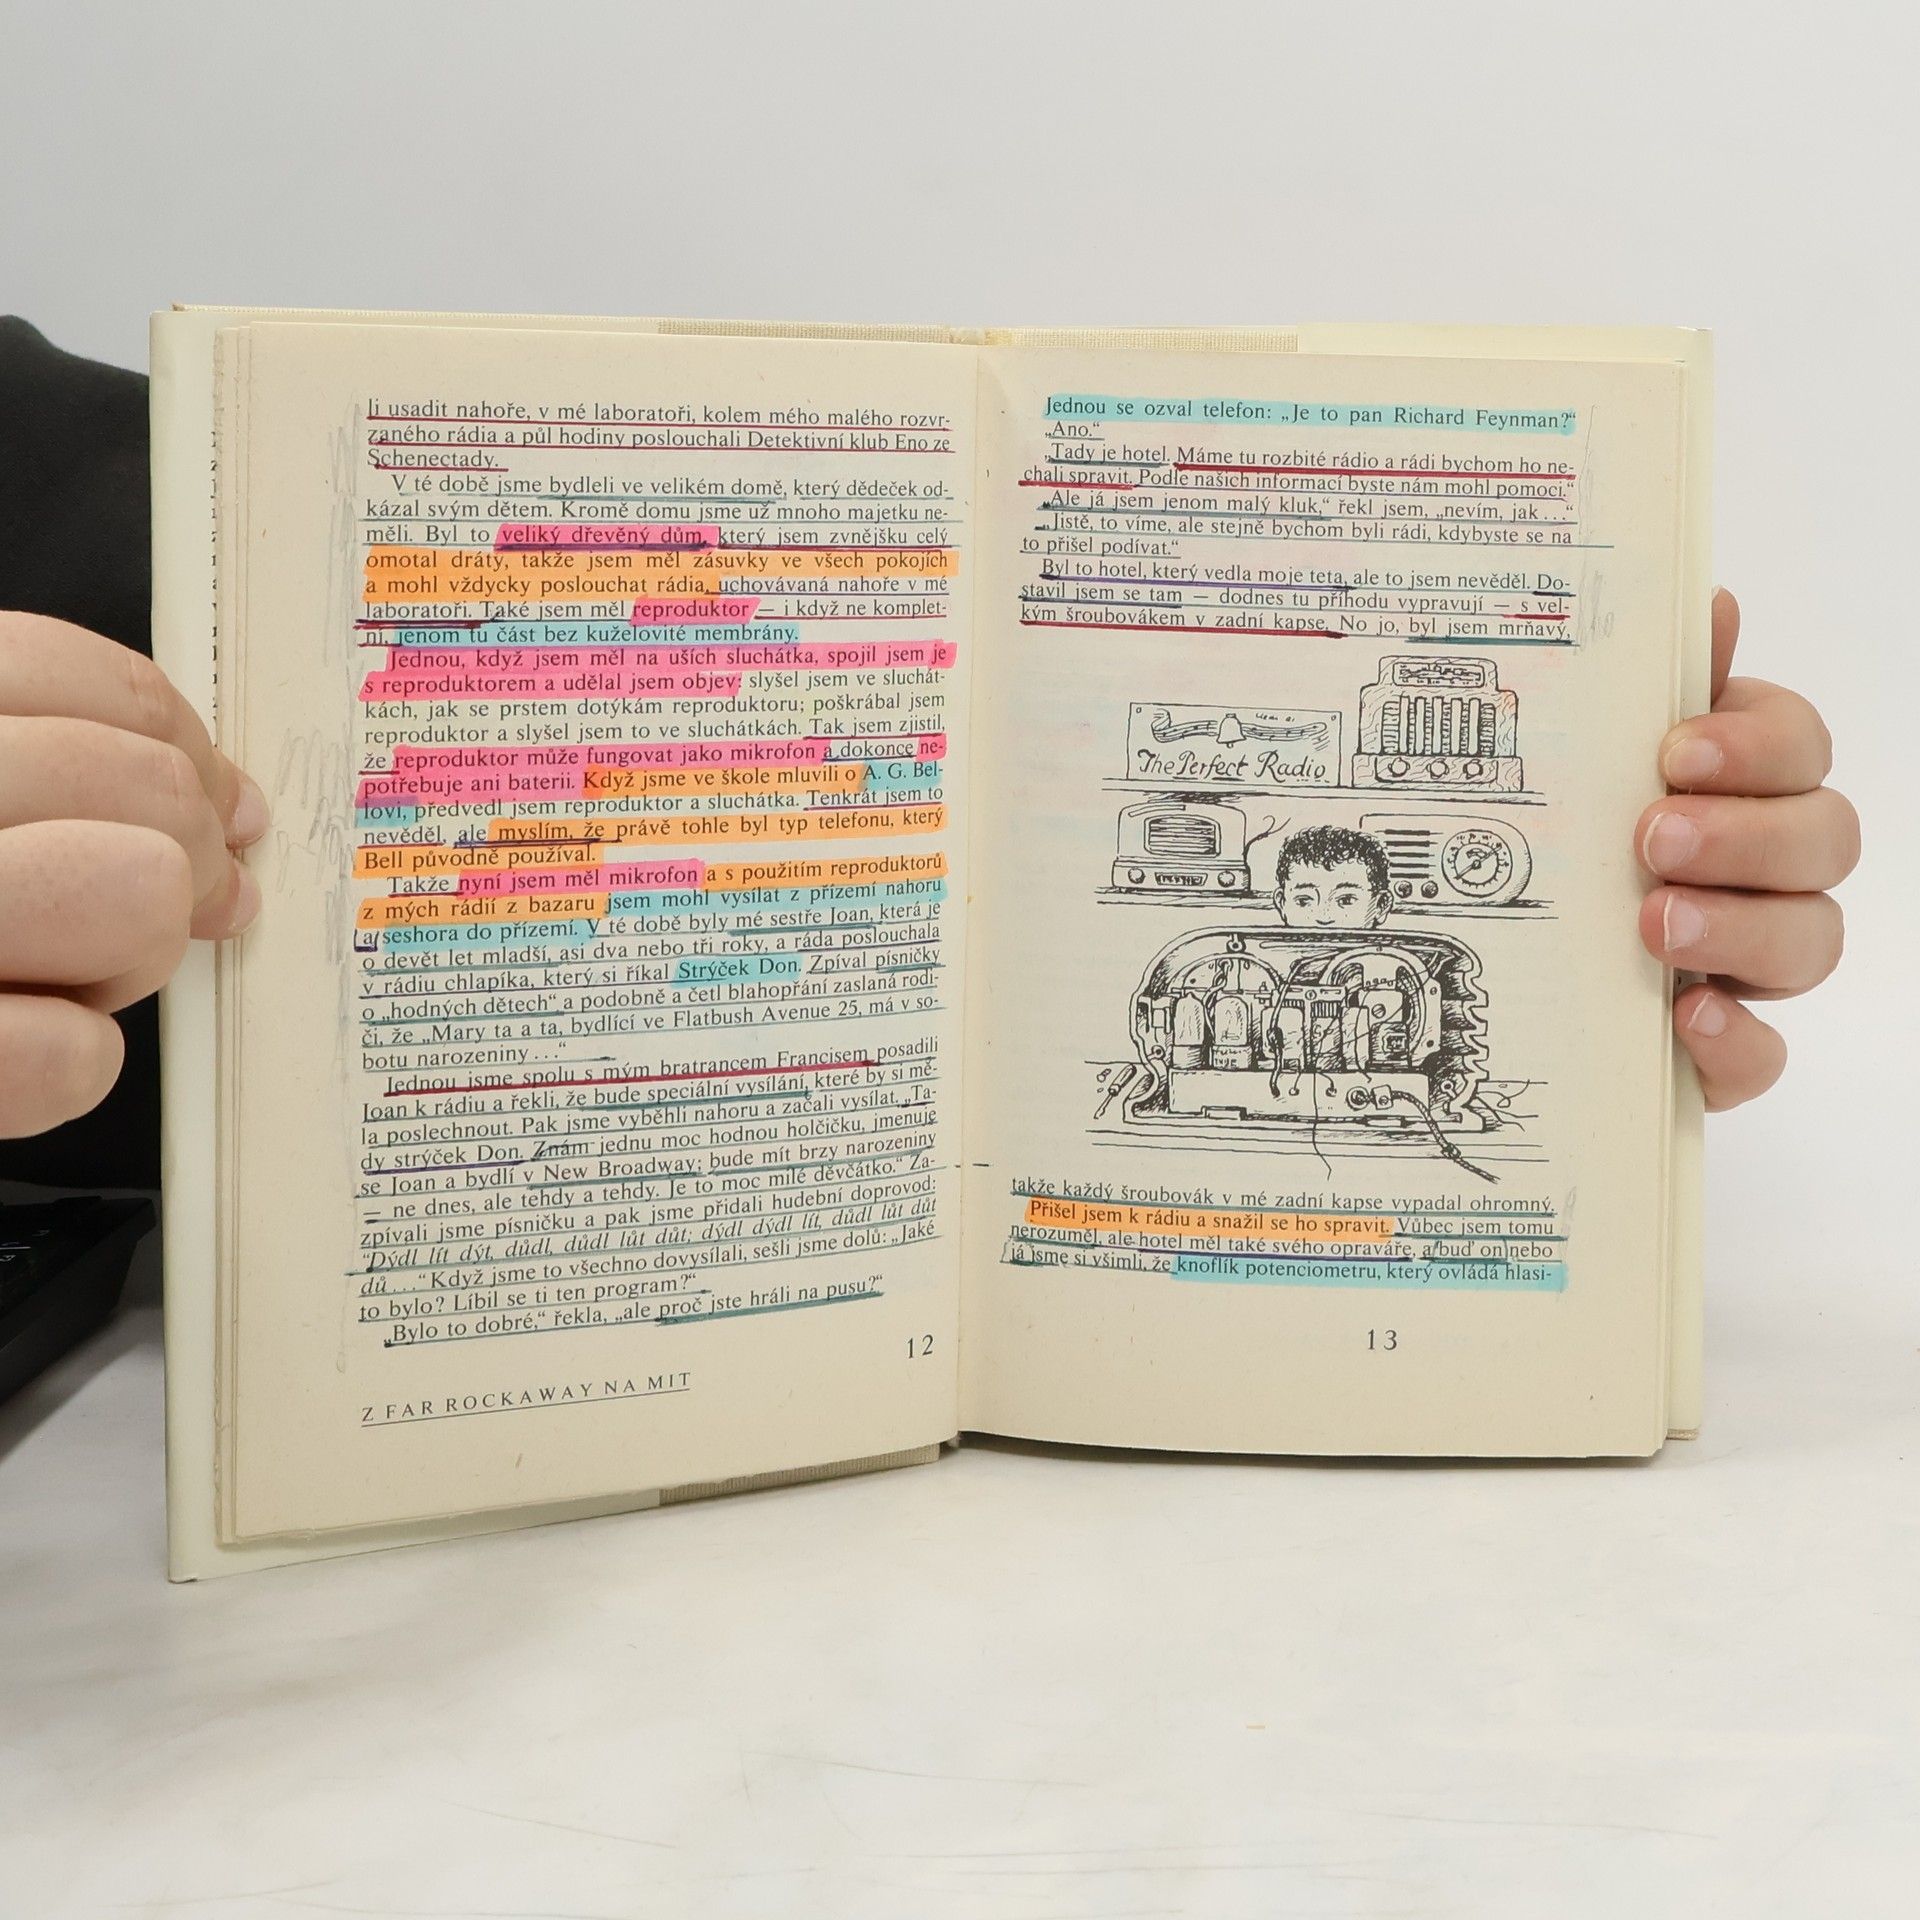 li usadit nahoře, v mé laboratoři, kolem mého malého rozvr-
zaného rádia a půl hodiny poslouchali Detektivní klub Eno ze
Schenectady.
V té době jsme bydleli ve velikém domě, který dědeček od-
kázal svým dětem. Kromě domu jsme už mnoho majetku ne-
měli. Byl to veliký dřevěný dům, který jsem zvnějšku celý
omotal dráty, takže jsem měl zásuvky ve všech pokojích
a mohl vždycky poslouchat rádia, uchovávaná nahoře v mé
laboratoři. Také jsem měl reproduktor — i když ne komplet-
ní, jenom tu část bez kuželovité membrány.
Jednou, když jsem měl na uších sluchátka, spojil jsem je
s reproduktorem a udělal jsem objev: slyšel jsem ve sluchát-
kách, jak se prstem dotýkám reproduktoru; poškrábal jsem
reproduktor a slyšel jsem to ve sluchátkách. Tak jsem zjistil,
že reproduktor může fungovat jako mikrofon a dokonce ne-
potřebuje ani baterii. Když jsme ve škole mluvili o A. G. Bel-
lovi, předvedl jsem reproduktor a sluchátka. Tenkrát jsem to
nevěděl, ale myslím, že právě tohle byl typ telefonu, který
Bell původně používal.
Takže nyní jsem měl mikrofon a s použitím reproduktorů
z mých rádií z bazaru jsem mohl vysílat z přízemí nahoru
a seshora do přízemí. V té době byly mé sestře Joan, která je
o devět let mladší, asi dva nebo tři roky, a ráda poslouchala
v rádiu chlapíka, který si říkal Strýček Don. Zpíval písničky
o „hodných dětech“ a podobně a četl blahopřání zaslaná rodi-
či, že „Mary ta a ta, bydlící ve Flatbush Avenue 25, má v so-
botu narozeniny . . .“
Jednou jsme spolu s mým bratrancem Francisem posadili
Joan k rádiu a řekli, že bude speciální vysílání, které by si mě-
la poslechnout. Pak jsme vyběhli nahoru a začali vysílat. „Ta-
dy strýček Don. Znám jednu moc hodnou holčičku, jmenuje
se Joan a bydlí v New Broadway; bude mít brzy narozeniny
— ne dnes, ale tehdy a tehdy. Je to moc milé děvčátko.“ Za-
zpívali jsme písničku a pak jsme přidali hudební doprovod:
“Dýdl lít dýt, důdl, důdl lůt důt; dýdl dýdl lít, důdl lůt důt
dů . . .“ Když jsme to všechno dovysílali, sešli jsme dolů: „Jaké
to bylo? Líbil se ti ten program?“
„Bylo to dobré,“ řekla, „ale proč jste hráli na pusu?“
12
Z FAR ROCKAWAY NA MIT
Jednou se ozval telefon: „Je to pan Richard Feynman?“
„Ano.“
„Tady je hotel. Máme tu rozbité rádio a rádi bychom ho ne-
chali spravit. Podle našich informací byste nám mohl pomoci.“
„Ale já jsem jenom malý kluk,“ řekl jsem, „nevím, jak . . .“
„Jistě, to víme, ale stejně bychom byli rádi, kdybyste se na
to přišel podívat.“
Byl to hotel, který vedla moje teta, ale to jsem nevěděl. Do-
stavil jsem se tam — dodnes tu příhodu vypravují — s vel-
kým šroubovákem v zadní kapse. No jo, byl jsem mrňavý,
The Perfect Radio
takže každý šroubovák v mé zadní kapse vypadal ohromný.
Přišel jsem k rádiu a snažil se ho spravit. Vůbec jsem tomu
nerozuměl, ale hotel měl také svého opraváře, a buď on nebo
já jsme si všimli, že knoflík potenciometru, který ovládá hlasi-
13